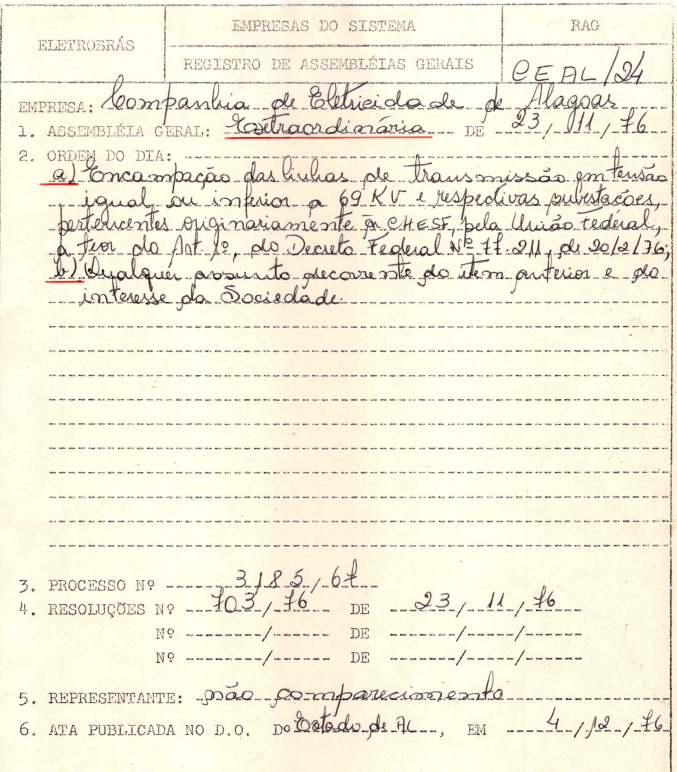 ELETROBRÁS
EMPRESAS DO SISTEMA
RAG
REGISTRO DE ASSEMBLÉIAS GERAIS
CEAL/24
EMPRESA: Companhia de Eletricidade de Alagoas
1. ASSEMBLÉIA GERAL: Extraordinária DE 23/11/76
2. ORDEM DO DIA:
a) Encampação das linhas de transmissão em tensão
igual ou inferior a 69 KV e respectivas subestações,
pertencentes originariamente à CHESF, pela União Federal,
a teor do Art. 1º, do Decreto Federal Nº 77.211, de 20/2/76;
b) Qualquer assunto decorrente do item anterior e do
interesse da Sociedade.
3. PROCESSO Nº 3185/67
4. RESOLUÇÕES Nº 703/76 DE 23/11/76
Nº ------/------ DE ------/------/------
Nº ------/------ DE ------/------/------
5. REPRESENTANTE: não comparecimento
6. ATA PUBLICADA NO D.O. Do Estado de AL, EM 4/12/76